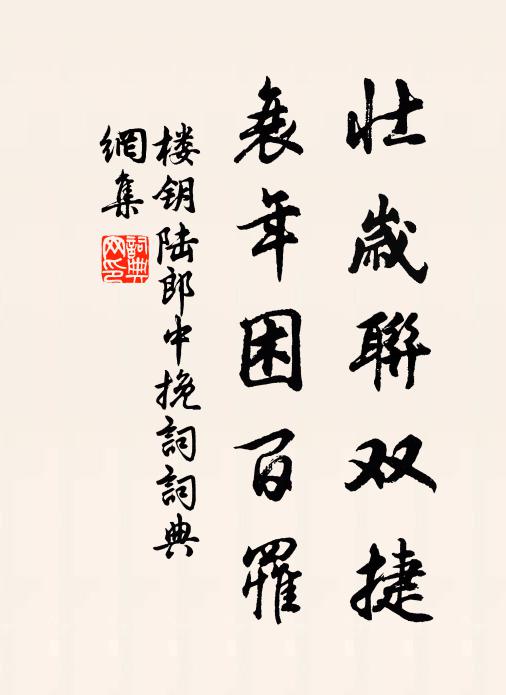 壮歲聯双捷
衰年困百罹
楼钥陆郎中挽詞詞典
網集
詞典
网印